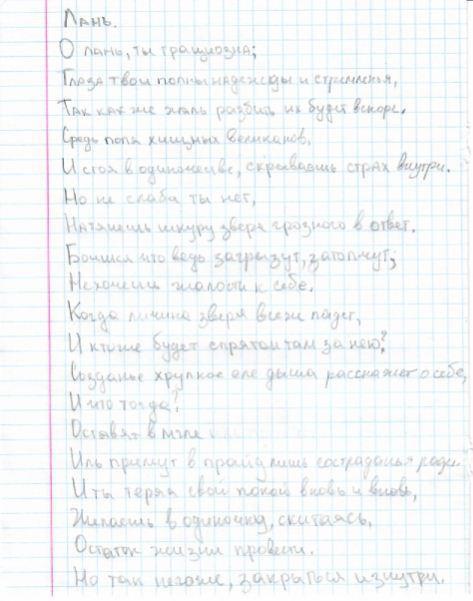 Лань.
О лань, ты грациозна;
Глаза твои полны надежды и стремленья,
Так как же жаль разбить их будет вскоре.
Средь поля хищных великанов,
И стоя в одиночестве, скрываешь страх внутри.
Но не слаба ты нет,
Натянешь шкуру зверя грозного в ответ.
Боишся что ведь загрызут, затопчут;
Не хочешь жалости к себе.
Когда личина зверя все же падет,
И кто же будет спрятан там за нею?
Созданье хрупкое еле дыша расскажет о себе,
И что тогда?
Оставят в мгле
Иль примут в прайд лишь состраданья ради.
И ты теряя свой покой вновь и вновь,
Желаешь в одиночку, скитаясь,
Остаток жизни провести.
Но так негоже, закрыться изнутри.